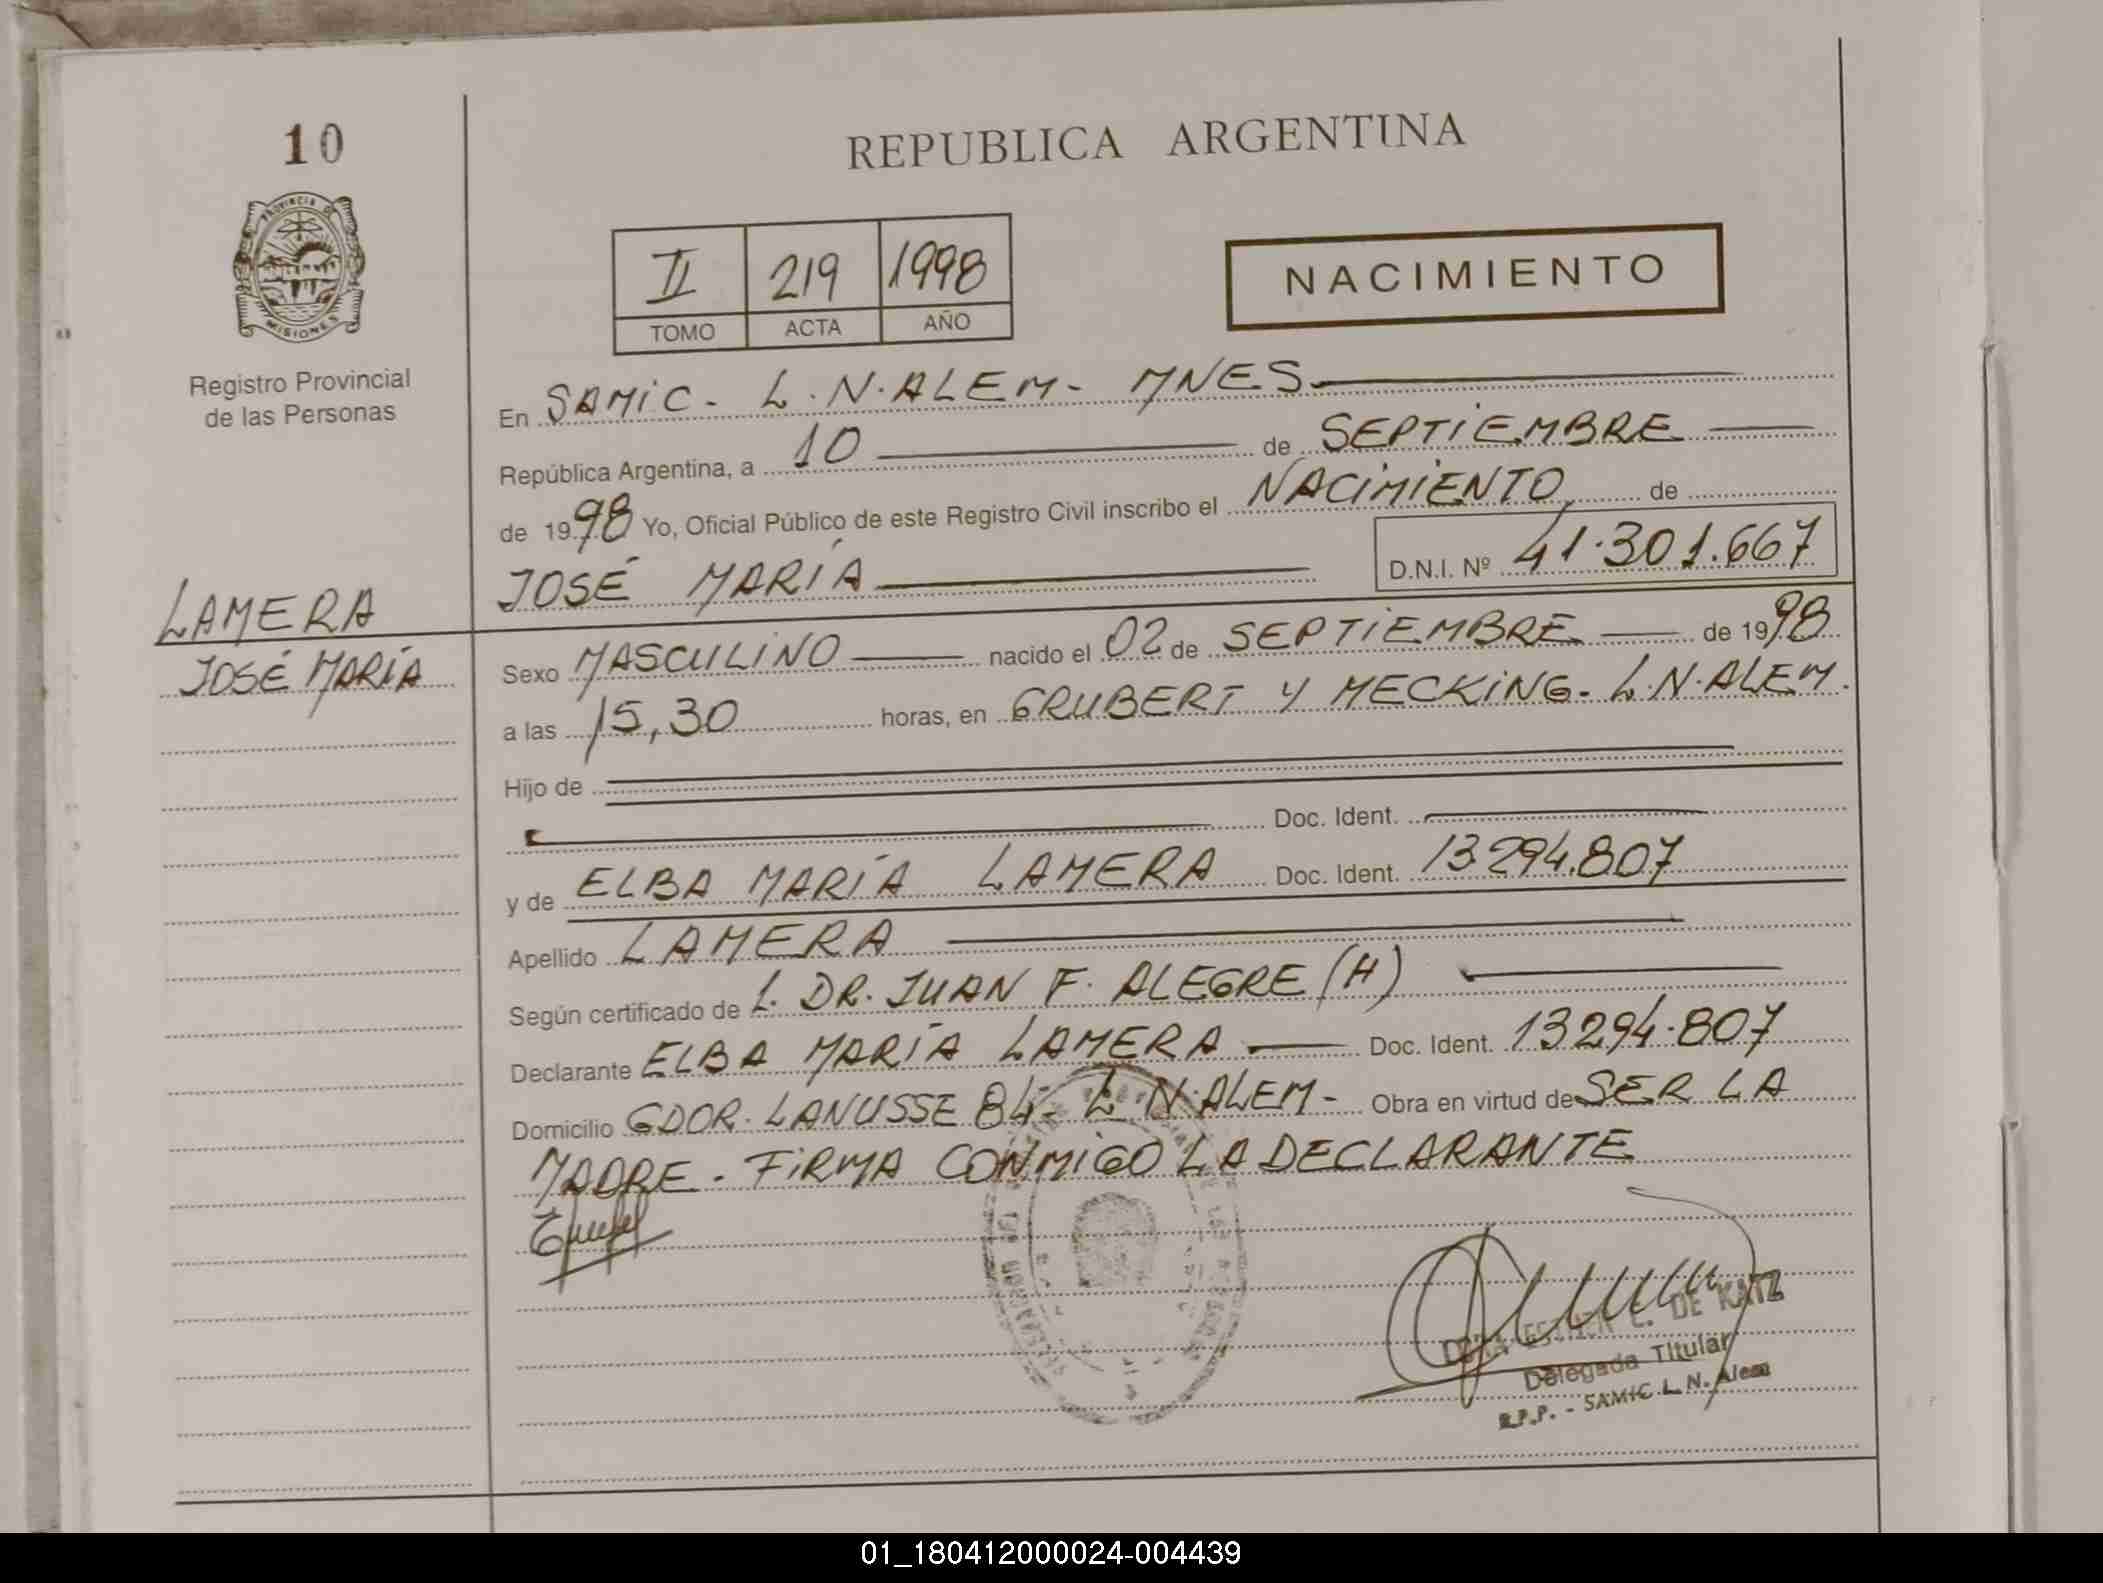 10
REPUBLICA ARGENTINA
PROVINCIA DE
MISIONES
II 219 1998
TOMO ACTA AÑO
NACIMIENTO
Registro Provincial
de las Personas
En SAMIC - L.N.ALEM - MNES
República Argentina, a 10 de SEPTIEMBRE
de 1998 Yo, Oficial Público de este Registro Civil inscribo el NACIMIENTO de
JOSÉ MARÍA D.N.I. Nº 41.301.667
LAMERA
JOSÉ MARÍA
Sexo MASCULINO nacido el 02 de SEPTIEMBRE de 1998
a las 15,30 horas, en GRUBERT Y MECKING - L.N.ALEM.
Hijo de
Doc. Ident.
y de ELBA MARÍA LAMERA Doc. Ident. 13.294.807
Apellido LAMERA
Según certificado de 1. DR. JUAN F. ALEGRE (H)
Declarante ELBA MARÍA LAMERA Doc. Ident. 13294.807
Domicilio GDOR. LANUSSE 84 - L.N.ALEM - Obra en virtud de SER LA
MADRE - FIRMA CONMIGO LA DECLARANTE
DE KATZ
Delegada Titular
R.P.P. - SAMIC L. N. Alem
01_180412000024-004439